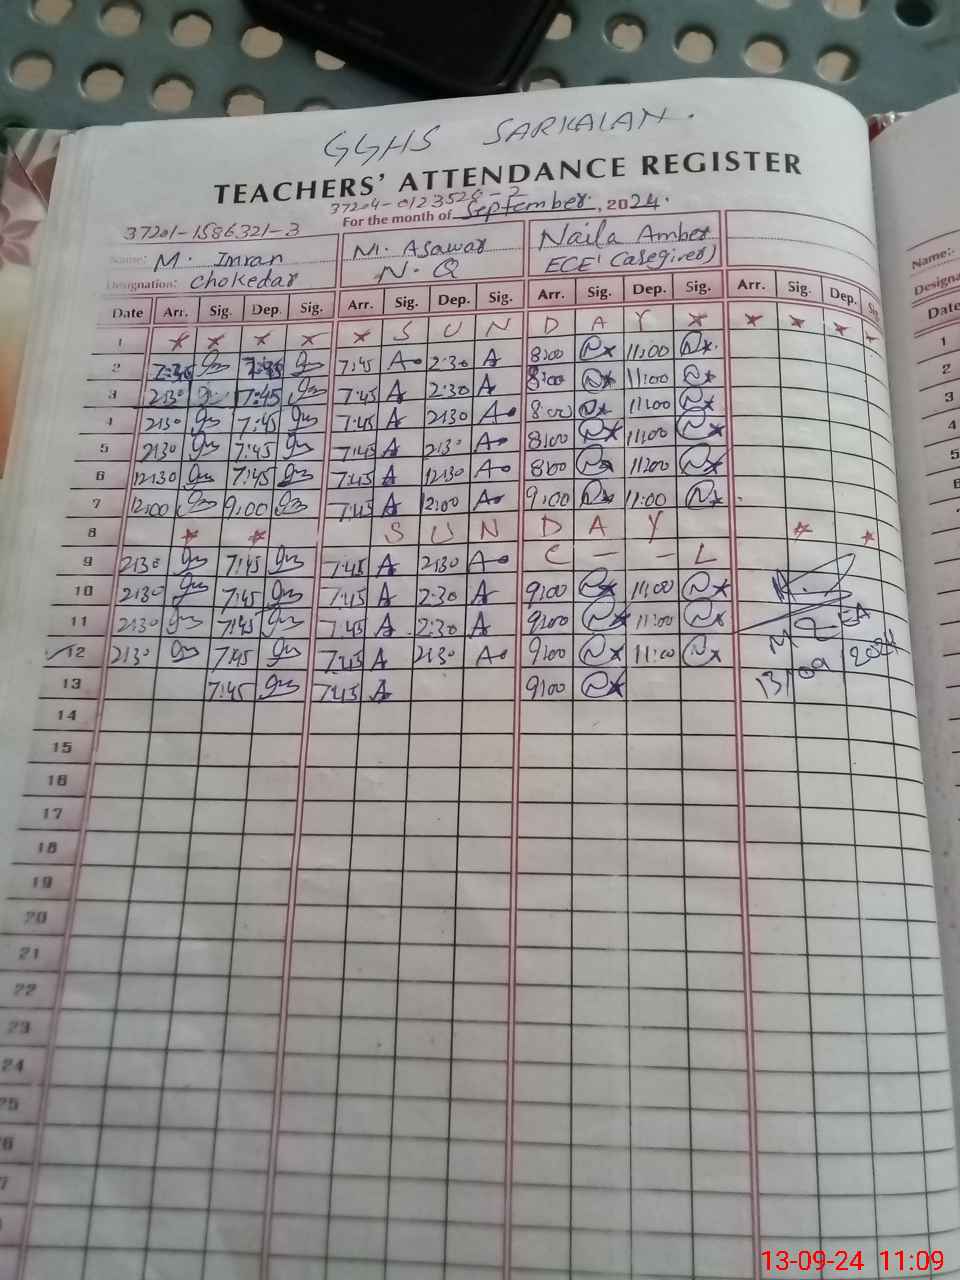 GGHS SARKALAN.
TEACHERS' ATTENDANCE REGISTER
37204-0123528-2
For the month of September, 2024.
37201-1586321-3
Name: M. Imran M. Asawar Naila Amber
Designation: Chokedar N.Q ECE (Caregiver)
Date Arr. Sig. Dep. Sig. Arr. Sig. Dep. Sig. Arr. Sig. Dep. Sig. Arr. Sig. Dep.
1 S U N D A Y
2 7:45 A 2:30 A 8:00 11:00
3 2:30 7:45 7:45 A 2:30 A 8:00 11:00
4 2:30 7:45 7:45 A 2:30 A 8:00 11:00
5 2:30 7:45 7:45 A 2:30 A 8:00 11:00
6 12:30 7:45 7:45 A 12:30 A 8:00 11:00
7 12:00 9:00 7:45 A 12:00 A 9:00 11:00
8 S U N D A Y
9 2:30 7:45 7:45 A 2:30 A C — — L
10 2:30 7:45 7:45 A 2:30 A 9:00 11:00
11 2:30 7:45 7:45 A 2:30 A 9:00 11:00
12 2:30 7:45 7:45 A 2:30 A 9:00 11:00
MEA
13/09/2024
13 7:45 7:45 A 9:00
14
15
16
17
18
19
20
21
22
23
24
25
Name:-
Date
1
2
3
4
5
6
13-09-24 11:09